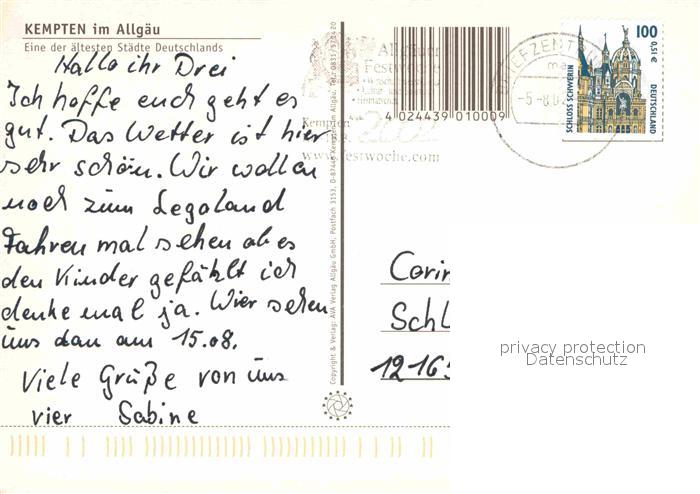 KEMPTEN im Allgäu
Eine der ältesten Städte Deutschlands
Hallo ihr Drei
Ich hoffe euch geht es
gut. Das Wetter ist hier
sehr schön. Wir wollen
noch zum Legoland
Fahren mal sehen ob es
den Kinder gefählt ich
denke mal ja. Wier sehen
uns dan am 15.08.
Viele Grüße von uns
vier Sabine
Copyright & Verlag: AVA Verlag Allgäu GmbH, Postfach 3153, D-87440 Kempten im Allgäu, Tel.
Allgäuer
Festwoche
Kempten
2002
www.festwoche.com
4 024439 010009
BRIEFZENTRUM
-5.-8.0
100
0,51 €
SCHLOSS SCHWERIN
DEUTSCHLAND
Corin
Schl
12165
privacy protection
Datenschutz